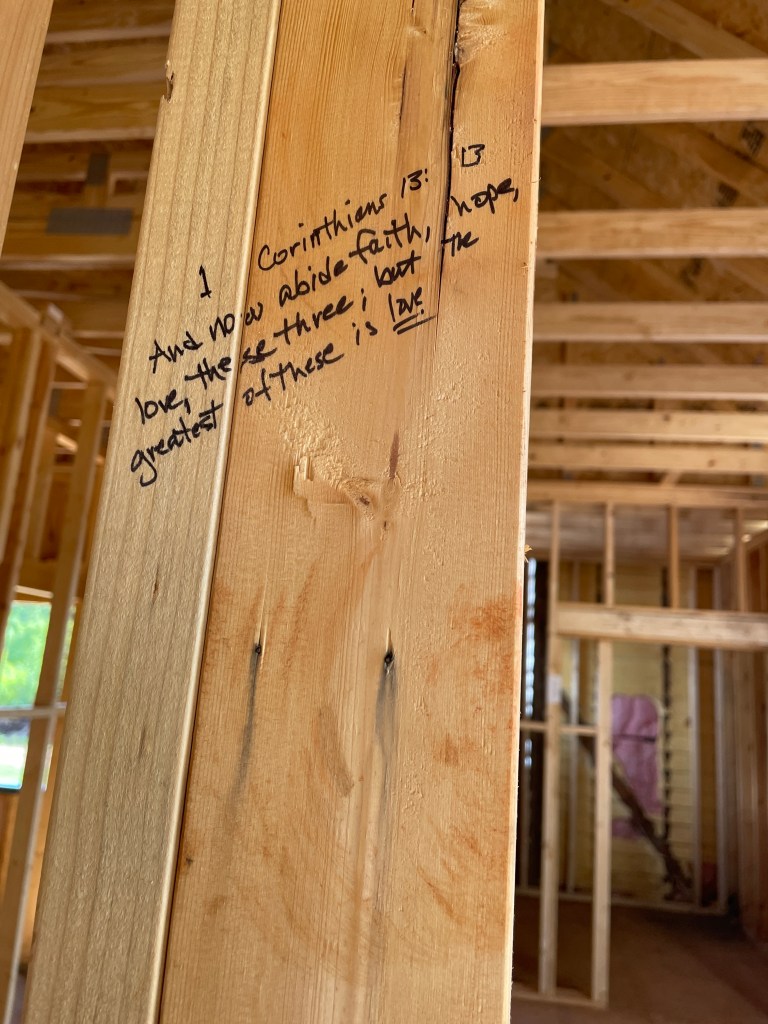 1 Corinthians 13:13
And now abide faith, hope,
love, these three; but the
greatest of these is love